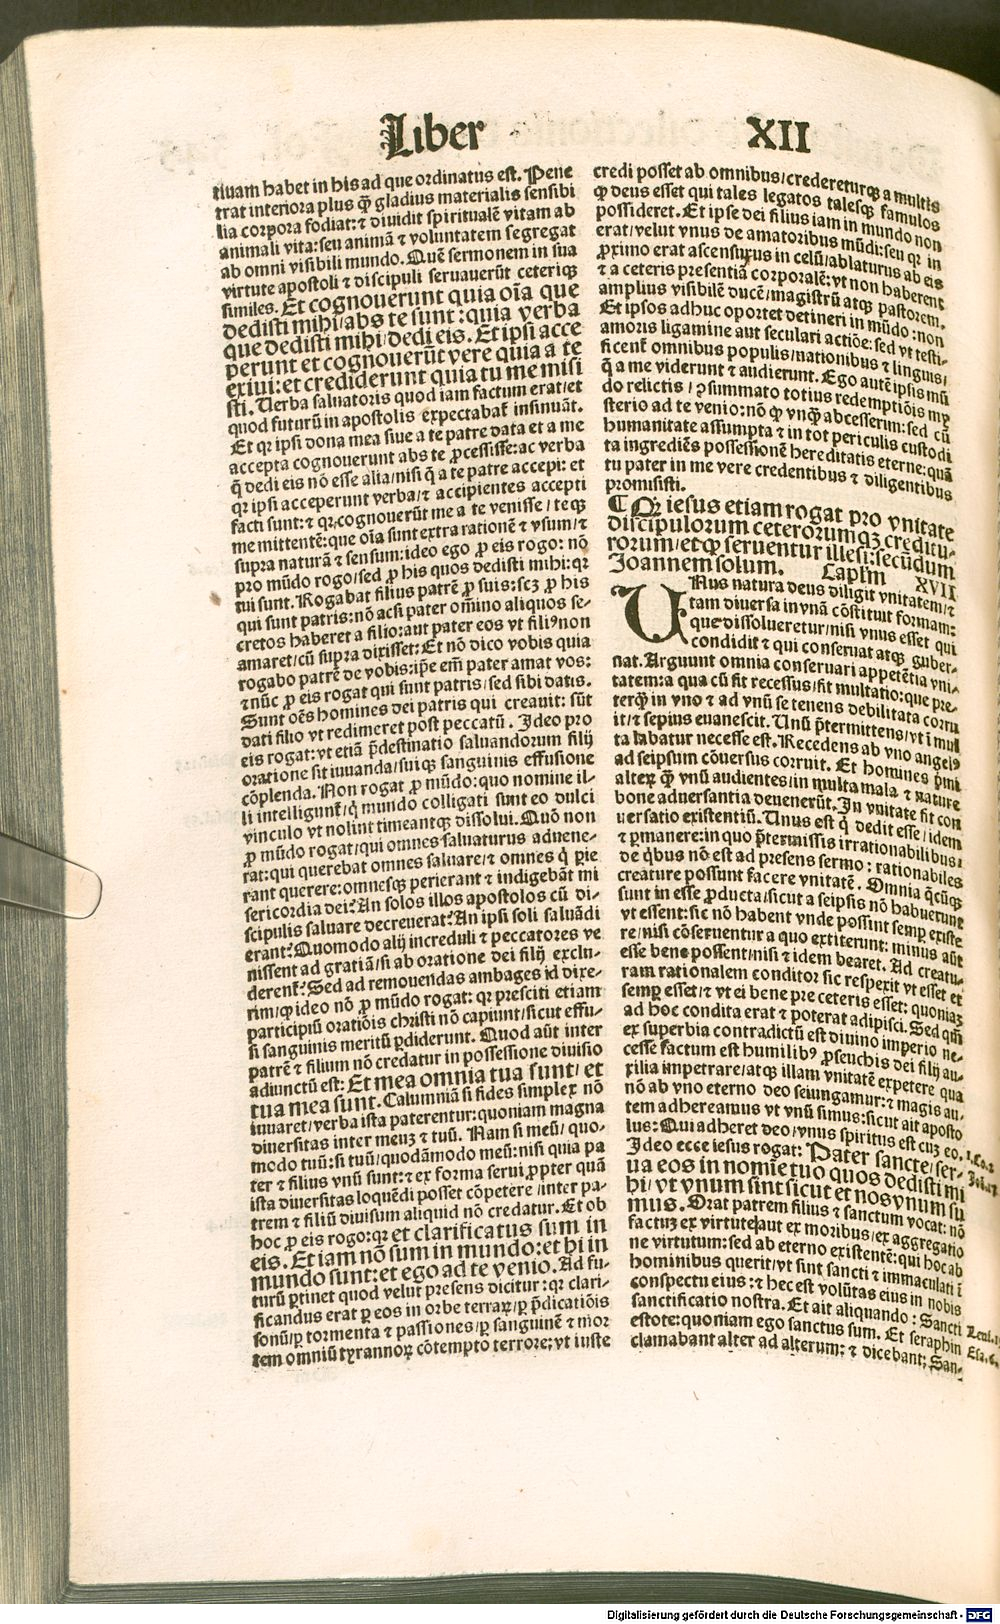 Liber XII
tiuam habet in his ad que ordinatus est. Pene
trat interiora plus qȝ gladius materialis sensibi
lia corpora fodiat: ⁊ diuidit spiritualē vitam ab
animali vita: seu animā ⁊ voluntatem segregat
ab omni visibili mundo. Quē sermonem in sua
virtute apostoli ⁊ discipuli seruauerūt ceteriqȝ
similes. Et cognouerunt quia oīa que
dedisti mihi/abs te sunt: quia verba
que dedisti mihi/dedi eis. Et ipsi acce
perunt et cognouerūt vere quia a te
exiui: et crediderunt quia tu me misi
sti. Uerba saluatoris quod iam factum erat/et
quod futurū in apostolis expectabat̄ insinuāt.
Et qꝛ ipsi dona mea siue a te patre data et a me
accepta cognouerunt abs te ꝓcessisse: ac verba
q̄ dedi eis nō esse alia/nisi q̄ a te patre accepi: et
qꝛ ipsi acceperunt verba/⁊ accipientes accepti
facti sunt: ⁊ qꝛ cognouerūt me a te venisse/teqȝ
me mittentē: que oīa sunt extra rationē ⁊ vsum/⁊
supra naturā ⁊ sensum: ideo ego ꝓ eis rogo: nō
pro mūdo rogo/sed ꝓ his quos dedisti mihi: qꝛ
tui sunt. Rogabat filius patrē ꝓ suis: scȝ ꝓ his
qui sunt patris: nō acsi pater om̄ino aliquos se-
cretos haberet a filio: aut pater eos vt fili⁹ non
amaret/cū supra dixisset: Et nō dico vobis quia
rogabo patrē de vobis: ip̄e em̄ pater amat vos:
⁊ nūc ꝓ eis rogat qui sunt patris/sed sibi datis.
Sunt oēs homines dei patris qui creauit: sūt
dati filio vt redimeret post peccatū. Ideo pro
eis rogat: vt etiā p̄destinatio saluandorum filij
oratione sit iuuanda/suiqȝ sanguinis effusione
cōplenda. Non rogat ꝓ mūdo: quo nomine il-
li intelligunt̄/q̄ mundo colligati sunt eo dulci
vinculo vt nolint timeantqȝ dissolui. Quō non
ꝓ mūdo rogat/qui omnes saluaturus aduene-
rat: qui querebat omnes saluare/⁊ omnes q̄ ꝑie
rant querere: omnesqȝ perierant ⁊ indigebāt mi
sericordia dei? An solos illos apostolos cū di-
scipulis saluare decreuerat? An ipsi soli saluādi
erant? Quomodo alij increduli ⁊ peccatores ve
nissent ad gratiā/si ab oratione dei filij exclu-
derent̄? Sed ad remouendas ambages id dixe-
rim/qꝙ ideo nō ꝓ mūdo rogat: qꝛ presciti etiam
participiū oratiōis christi nō capiunt/sicut effu-
si sanguinis meritū ꝑdiderunt. Quod aūt inter
patrē ⁊ filium nō credatur in possessione diuisio
adiunctū est: Et mea omnia tua sunt/et
tua mea sunt. Calumniā si fides simplex nō
iuuaret/verba ista paterentur: quoniam magna
diuersitas inter meuȝ ⁊ tuū. Nam si meū/quo-
modo tuū: si tuū/quodāmodo meū: nisi quia pa
ter ⁊ filius vnū sunt: ⁊ ex forma serui ꝓpter quā
ista diuersitas loquēdi posset cōpetere/inter pa-
trem ⁊ filiū diuisum aliquid nō credatur. Et ob
hoc ꝓ eis rogo: qꝛ et clarificatus sum in
eis. Et iam nō sum in mundo: et hi in
mundo sunt: et ego ad te venio. Ad fu-
turū ꝑtinet quod velut presens dicitur: qꝛ clari-
ficandus erat ꝑ eos in orbe terraꝝ/ꝑ p̄dicatiōis
sonū/ꝑ tormenta ⁊ passiones/ꝑ sanguinē ⁊ mor
tem omniū tyrannoꝝ cōtempto terrore: vt iuste
credi posset ab omnibus/credereturqȝ a multis
ꝙ deus esset qui tales legatos talesqȝ famulos
possideret. Et ipse dei filius iam in mundo non
erat/velut vnus de amatoribus mūdi: seu qꝛ in
ꝓximo erat ascensurus in celū/ablaturus ab eis
⁊ a ceteris presentiā corporalē: vt non haberent
amplius visibilē ducē/magistrū atqȝ pastorem.
Et ipsos adhuc oportet detineri in mūdo: non
amoris ligamine aut seculari actiōe: sed vt testi-
ficent̄ omnibus populis/nationibus ⁊ linguis/
q̄ a me viderunt ⁊ audierunt. Ego autē ipsis mū
do relictis/ꝯsummato totius redemptiōis my
sterio ad te venio: nō ꝙ vnqȝ abcesserim: sed cū
humanitate assumpta ⁊ in tot periculis custodi
ta ingrediēs possessionē hereditatis eterne: quā
tu pater in me vere credentibus ⁊ diligentibus
promisisti.
¶ Qꝛ iesus etiam rogat pro vnitate
discipulorum ceterorumqȝ creditu-
rorum/et ꝙ seruentur illesi: secūdum
Joannem solum. Caplm̄ XVII
UNus natura deus diligit vnitatem/⁊
tam diuersa in vnā cōstituit formam:
que dissolueretur/nisi vnus esset qui
condidit ⁊ qui conseruat atqȝ guber-
nat. Arguunt omnia conseruari appetētia vni-
tatem: a qua cū fit recessus/fit multatio: que pre-
terqȝ in vno ⁊ ad vnū se tenens debilitata corru
it/⁊ sepius euanescit. Unū p̄termittens/vt ī mul
ta labatur necesse est. Recedens ab vno angel⁹
ad seipsum cōuersus corruit. Et homines p̄mi
alteꝝ qȝ vnū audientes/in multa mala ⁊ nature
bone aduersantia deuenerūt. In vnitate fit con
uersatio existentiū. Unus est q̄ dedit esse/idem
⁊ ꝑmanere: in quo p̄termissis irrationabilibus:
de q̄bus nō est ad presens sermo: rationabiles
creature possunt facere vnitatē. Omnia q̄cūqȝ
sunt in esse ꝓducta/sicut a seipsis nō habuerunt
vt essent: sic nō habent vnde possint semꝑ existe
re/nisi cōseruentur a quo extiterunt: minus aūt
esse bene possent/nisi ⁊ idem bearet. Ad creatu-
ram rationalem conditor sic respexit vt esset et
semꝑ esset/⁊ vt ei bene pre ceteris esset: quoniaȝ
ad hoc condita erat ⁊ poterat adipisci. Sed qm̄
ex superbia contradictū est diuino imperio ne-
cesse factum est humilib⁹ ꝓseuchis dei filij au-
xilia impetrare/atqȝ illam vnitatē expetere qua
nō ab vno eterno deo seiungamur: ⁊ magis au-
tem adhereamus vt vnū simus: sicut ait aposto
lus: Qui adheret deo/vnus spiritus est cuȝ eo.
Ideo ecce iesus rogat: Pater sancte/ser-
ua eos in nomīe tuo quos dedisti mi
hi/vt vnum sint sicut et nos vnum su
mus. Orat patrem filius ⁊ sanctum vocat: nō
factuȝ ex virtute/aut ex moribus/ex aggregatio
ne virtutum: sed ab eterno existentē: qui hoc ab
hominibus querit/vt sint sancti ⁊ immaculati ī
conspectu eius: ⁊ hec est volūtas eius in nobis
sanctificatio nostra. Et ait aliquando: Sancti
estote: quoniam ego sanctus sum. Et seraphin
clamabant alter ad alterum: ⁊ dicebant: San-
Esa. 6.
Digitalisierung gefördert durch die Deutsche Forschungsgemeinschaft - DFG